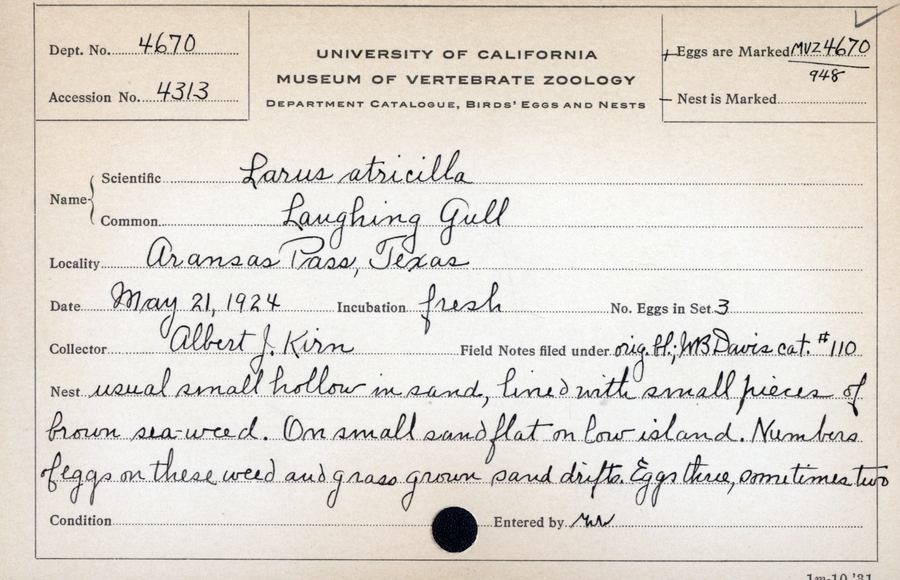 Dept. No. 4670
Accession No. 4313
UNIVERSITY OF CALIFORNIA
MUSEUM OF VERTEBRATE ZOOLOGY
DEPARTMENT CATALOGUE, BIRDS' EGGS AND NESTS
Eggs are Marked MVZ4670
948
Nest is Marked
Name
Scientific Larus atricilla
Common Laughing Gull
Locality Aransas Pass, Texas
Date May 21, 1924 Incubation fresh No. Eggs in Set 3
Collector Albert J. Kirn Field Notes filed under orig. bl.; WB Davis cat. #110
Nest usual small hollow in sand, lined with small pieces of
brown sea-weed. On small sand flat on low island. Numbers
of eggs on these weed and grass grown sand drifts. Eggs three, sometimes two
Condition Entered by
1m-10,'31